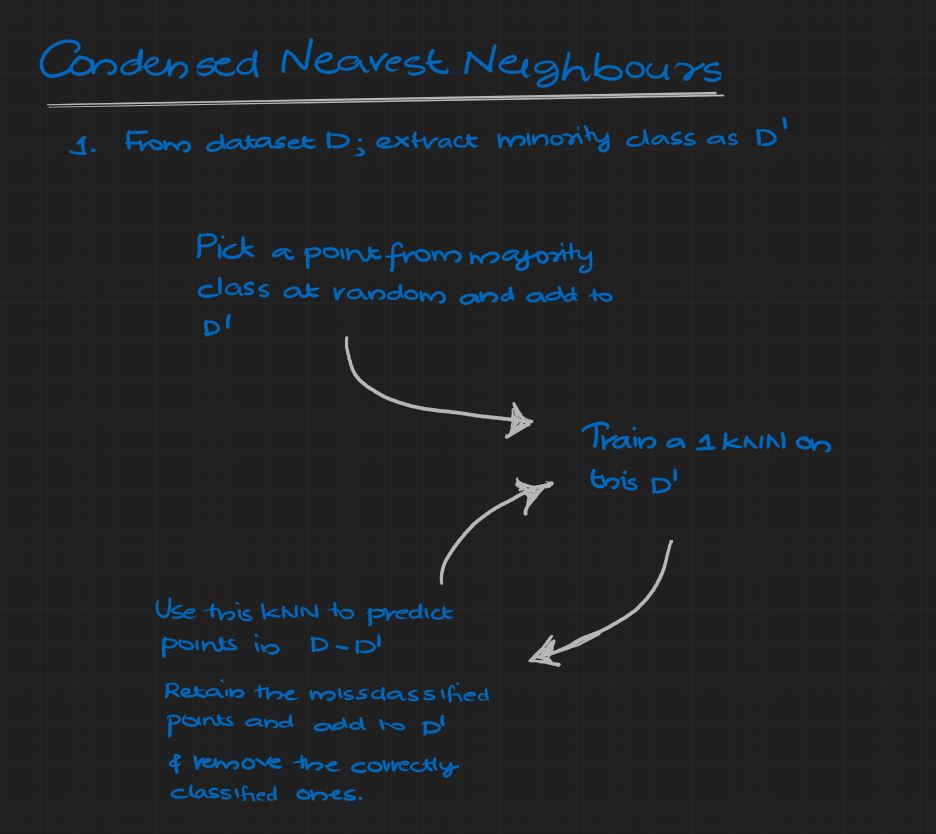 Condensed Nearest Neighbours
1. From dataset D; extract minority class as D'
Pick a point from majority
class at random and add to
D'
Train a 1 kNN on
this D'
Use this kNN to predict
points in D - D'
Retain the missclassified
points and add to D'
& remove the correctly
classified ones.